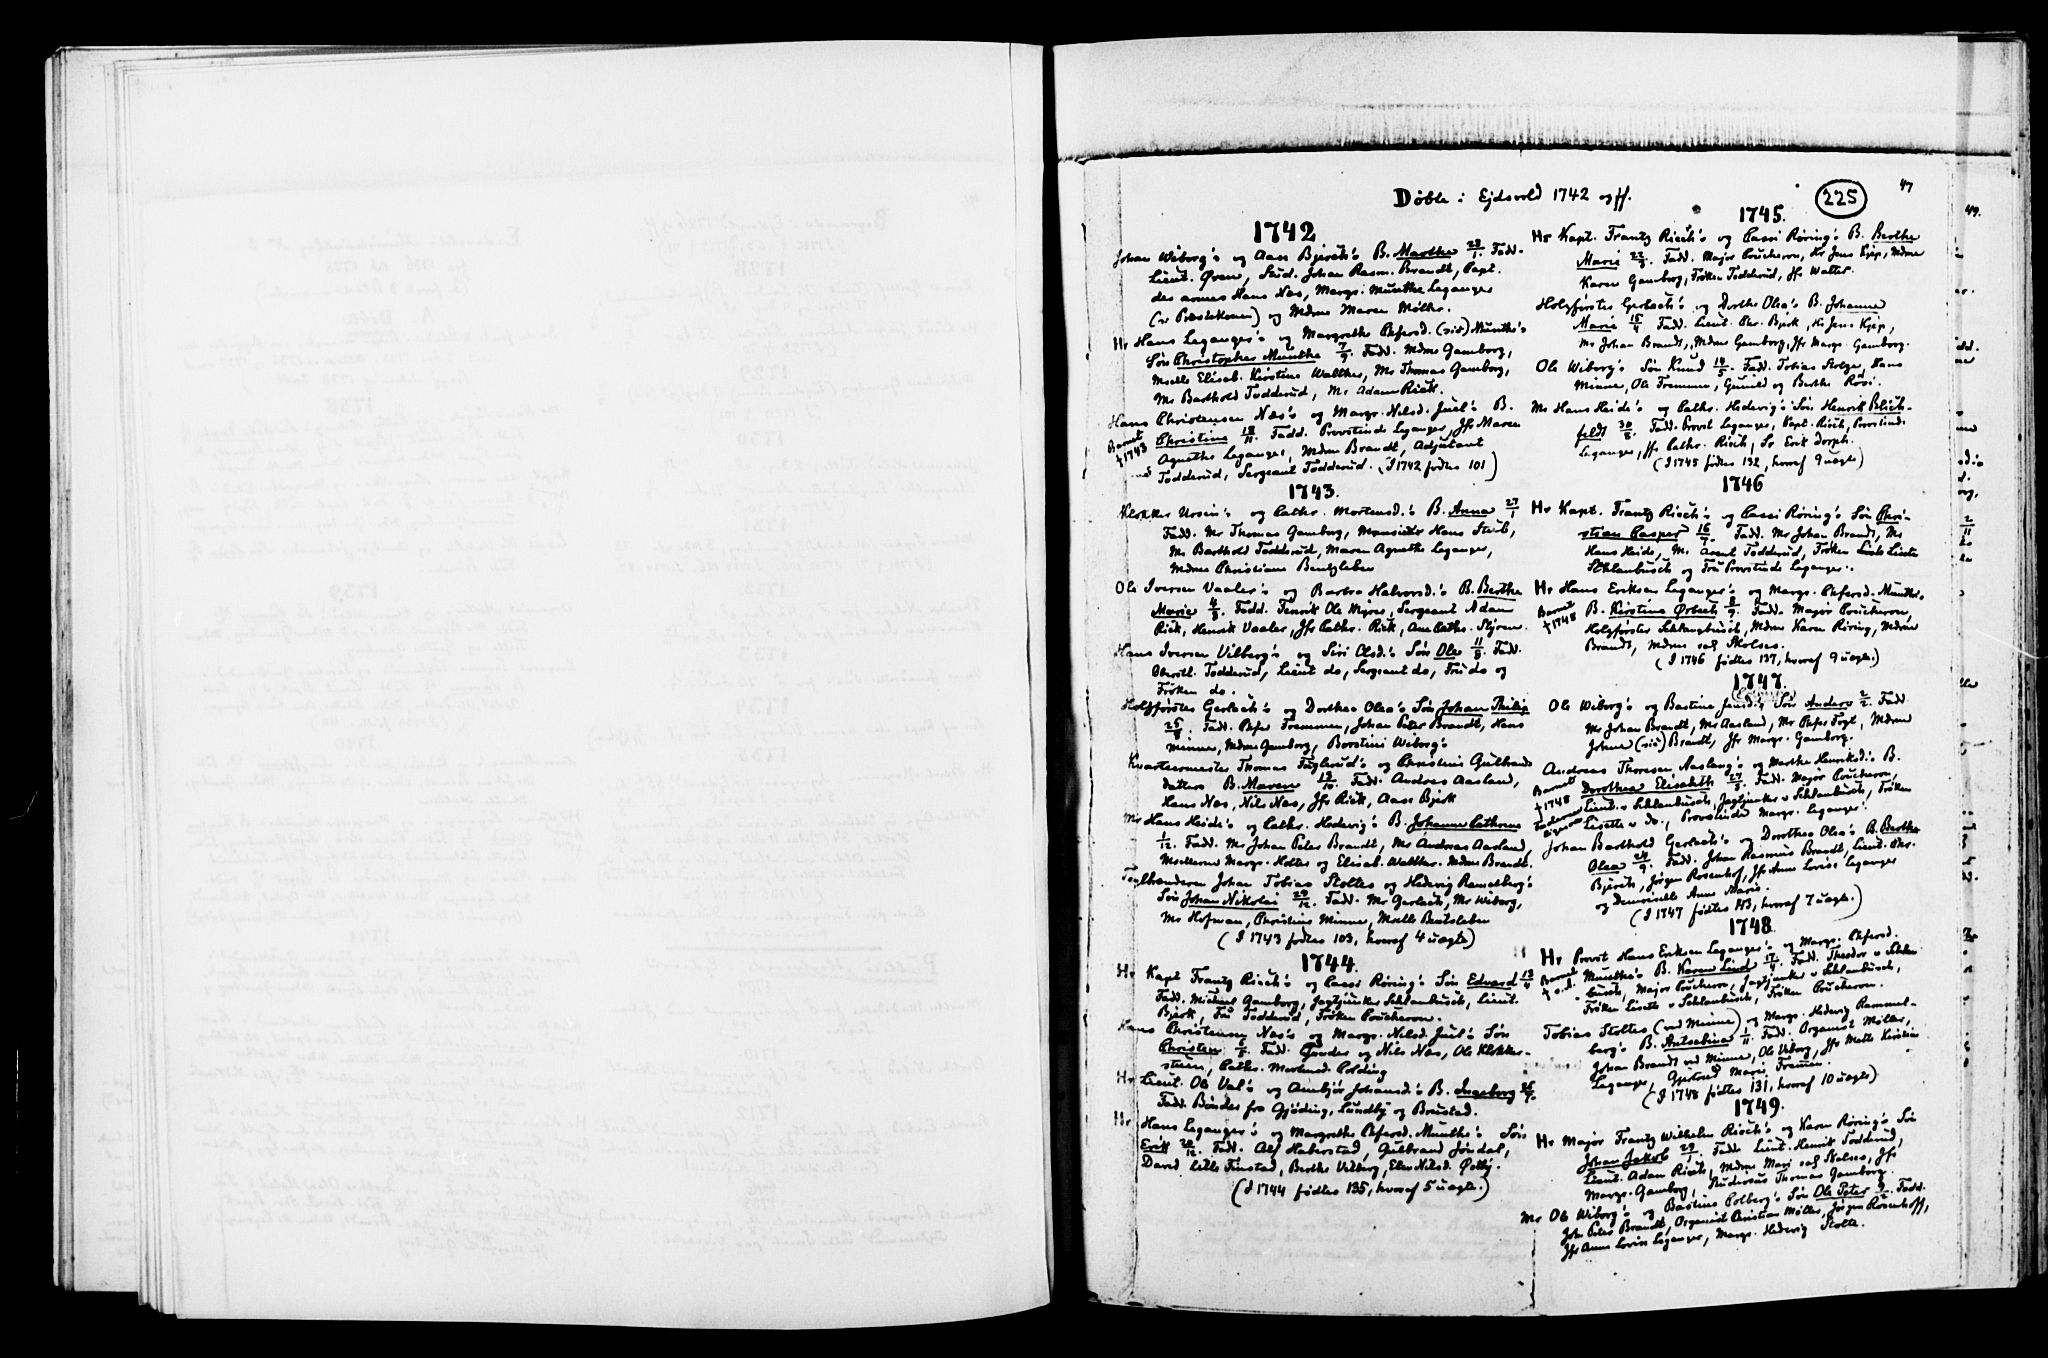 47
225
Døbte i Ejdsvold 1742 og ff.
1742
Johan Wiborg's og Aase Bjerck's B. Marthe 28/1. Fadd.
Lieut. Øren, Stud. Johan Rasm. Brandt, Capt.
des armes Hans Næs, Margr. Munthe Leganger
(ɔ: Præstekonen) og Mdme Maren Møller.
Hr Hans Leganger's og Margrethe Chfersd. (sic) Munthe's
Søn Christopher Munthe 7/9. Fadd. Mdme Gamborg,
Mselle Elisab. Kirstine Walther, Mr Thomas Gamborg,
Mr Barthold Todderud, Mr Adam Rick.
Hans Christensen Næs's og Margr. Nilsd. Juel's B.
Christine 18/11. Fadd. Provstinde Leganger, Jfr Maren
Barnet
† 1743
Agnethe Leganger, Mdme Brandt, Adjutant
Todderud, Sergeant Todderud. (I 1742 fødtes 101)
1743.
Klokker Ursin's og Cathr. Mortensd.'s B. Anna 27/1
Fadd. Mr Thomas Gamborg, Monsieur Hans Stub,
Mr Barthold Todderud, Maren Agnethe Leganger,
Mdme Christiane Bentzleben
Ole Iversen Vaaler's og Barbra Halvorsd.'s B. Berthe
Marie 4/8. Fadd. Fenrik Ole Meyer, Sergeant Adam
Rick, Henrik Vaaler, Jfr Cathr. Rick, Ane Cathr. Styren.
Hans Iversen Vilberg's og Siri Olsd.'s Søn Ole 11/8. Fadd.
Oberstl. Todderud, Lieut do, Sergeant do, Frue do og
Frøken do.
Holzførster Gerlach's og Dorthea Olea's Søn Johan Philip
25/8. Fadd. Chfer Fremmen, Johan Peter Brandt, Hans
Minner, Mdme Gamborg, Borstini Wiborg's
Kvartermester Thomas Fuglerud's og Christine Gulbrands
datters B. Maren 13/10. Fadd. Andreas Aasland,
Hans Næs, Nils Næs, Jfr Rick, Aase Bjerk
Mr Hans Heide's og Cathr. Hedevig's B. Johanne Cathrine
1/12. Fadd. Mr Johan Peter Brandt, Mr Andreas Aasland,
Msellerne Margr. Holter og Elisab. Walther. Mdme Brandt.
Johan Tobias Stoltes og Hedevig Ramelberg's
Søn Johan Nikolai 29/12. Fadd. Mr Gerlach, Mr Wiborg,
Mr Hofman, Christine Minner, Mselle Bentzleben
(I 1743 fødtes 103, hvoraf 4 uægte)
1744.
Hr Kapt Frantz Risch's og Cassi Røring's Søn Edvard 13/4
Fadd. Michael Gamborg, Jagtjunker Schlanbusch, Lieut.
Bjerk, Fru Todderud, Frøken Coucheron.
Hans Christensen Næs's og Margr. Nilsd. Juel's Søn
Christen 6/5. Fadd. Gunder og Nils Næs, Ole Klokker-
støen, Cathr. Mortensd. Colding
Hr Lieut. Ole Val's og Annbjør Johansd.'s B. Ingeborg 26/7.
Fadd. Bønder fra Gjøding, Lundby og Brustad.
Hr Hans Leganger's og Margrethe Chfersd. Munthe's Søn
Erik 28/12. Fadd. Alf Haberstad, Gulbrand Jøndal,
David Lille Finstad, Berthe Vilberg, Elen Nilsd. Østby.
(I 1744 fødtes 135, hvoraf 5 uægte.)
1745.
Hr Kapt. Frantz Risch's og Cassi Røring's B. Berthe
Marie 22/3. Fadd. Major Coucheron, Hr Jens Kjep, Mdme
Karen Gamborg, Frøken Todderud, Jfr Walter.
Holzførster Gerlach's og Dorthe Olea's B. Johanne
Marie 15/4. Fadd. Lieut. Chr. Bjerk, Hr Jens Kjep,
Mr Johan Brandt, Mdme Gamborg, Jfr Margr. Gamborg.
Ole Wiborg's Søn Knud 14/5. Fadd. Tobias Stolge, Hans
Minne, Ole Fremmen, Gunild og Berthe Røsi.
Mr Hans Heide's og Cathr. Hedevig's Søn Henrik Blich-
feldt 30/8. Fadd. Provst Leganger, Capt. Risch, Provstinde
Leganger, Jfr Cathr. Risch, Sr Erik Dorph.
(I 1745 fødtes 132, hvoraf 9 uægte)
1746
Hr Kapt. Frantz Risch's og Cassi Røring's Søn Chri-
stian Casper 16/7. Fadd. Mr Johan Brandt, Mr
Hans Heide, Mr Arent Todderud, Frøken Lisette
Schlanbusch og Fru Provstinde Leganger.
Hr Hans Eriksen Leganger's og Margr. Chfersd. Munthe's
B. Kirstine Ørbech 8/9. Fadd. Major Coucheron,
Barnet
† 1748
Holzførster Schlangbusch, Mdme Karen Røring, Mdme
Brandt, Mdme sal. Skolses.
(I 1746 fødtes 137, hvoraf 9 uægte.)
1747.
Ole Wiborg's og Bastine Jensd.'s Søn Anders 2/2. Fadd
Mr Johan Brandt, Mr Aasland, Mr Chfer Fogt, Mdme
Johne (sic) Brandt, Jfr Margr. Gamborg.
Andreas Thoresen Aasleng's og Marthe Henriksd's B.
Dorothea Elisabeth 27/3. Fadd. Major Coucheron,
Barnet
† 1748
Lieut. v Schlanbusch, Jagtjunker v Schlanbusch, Frøken
Lisette v do, Provstinde Margr. Leganger.
Johan Barthold Gerlach's og Dorothea Olea's B. Berthe
Olea 24/9. Fadd. Johan Rasmus Brandt, Lieut. Chr.
Bjerck, Jørgen Rosenhof, Jfr Anne Lovise Leganger
og Demoiselle Anne Marie.
(I 1747 fødtes 113, hvoraf 7 uægte.)
1748.
Hr Provst Hans Eriksen Leganger's og Margr. Chfersd.
Munthe's B. Karen Lind 17/4. Fadd. Theodor v Schlan-
Barnet
busch, Major Coucheron, Jagtjunker v Schlanbusch,
Frøken Lisette v Schlanbusch, Frøken Coucheron.
Tobias Stoltes (ved Minne) og Margr. Hedevig Rammel-
berg's B. Antsabina 1/11. Fadd. Organist Møller,
Johan Brandt ved Minne, Ole Viborg, Jfr Mette Kirstine
Leganger, Gjertrud Marie Fremen.
(I 1748 fødtes 131, hvoraf 10 uægte)
1749.
Hr Major Frantz Wilhelm Risch's og Karen Røring's Søn
Johan Jakob 29/1. Fadd. Lieut. Henrik Todderud,
Lieut. Adam Risch, Mdme Mari sal Skolses, Jfr
Margr. Gamborg, Studiosus Thomas Gamborg.
Mr Ole Wiborg's og Bastine Colberg's Søn Ole Peter 9/2. Fadd.
Joh Peter Brandt, Organist Christian Møller, Jørgen Rosenhoff,
Jfr Anne Lovise Leganger, Margr. Hedevig Stolte.